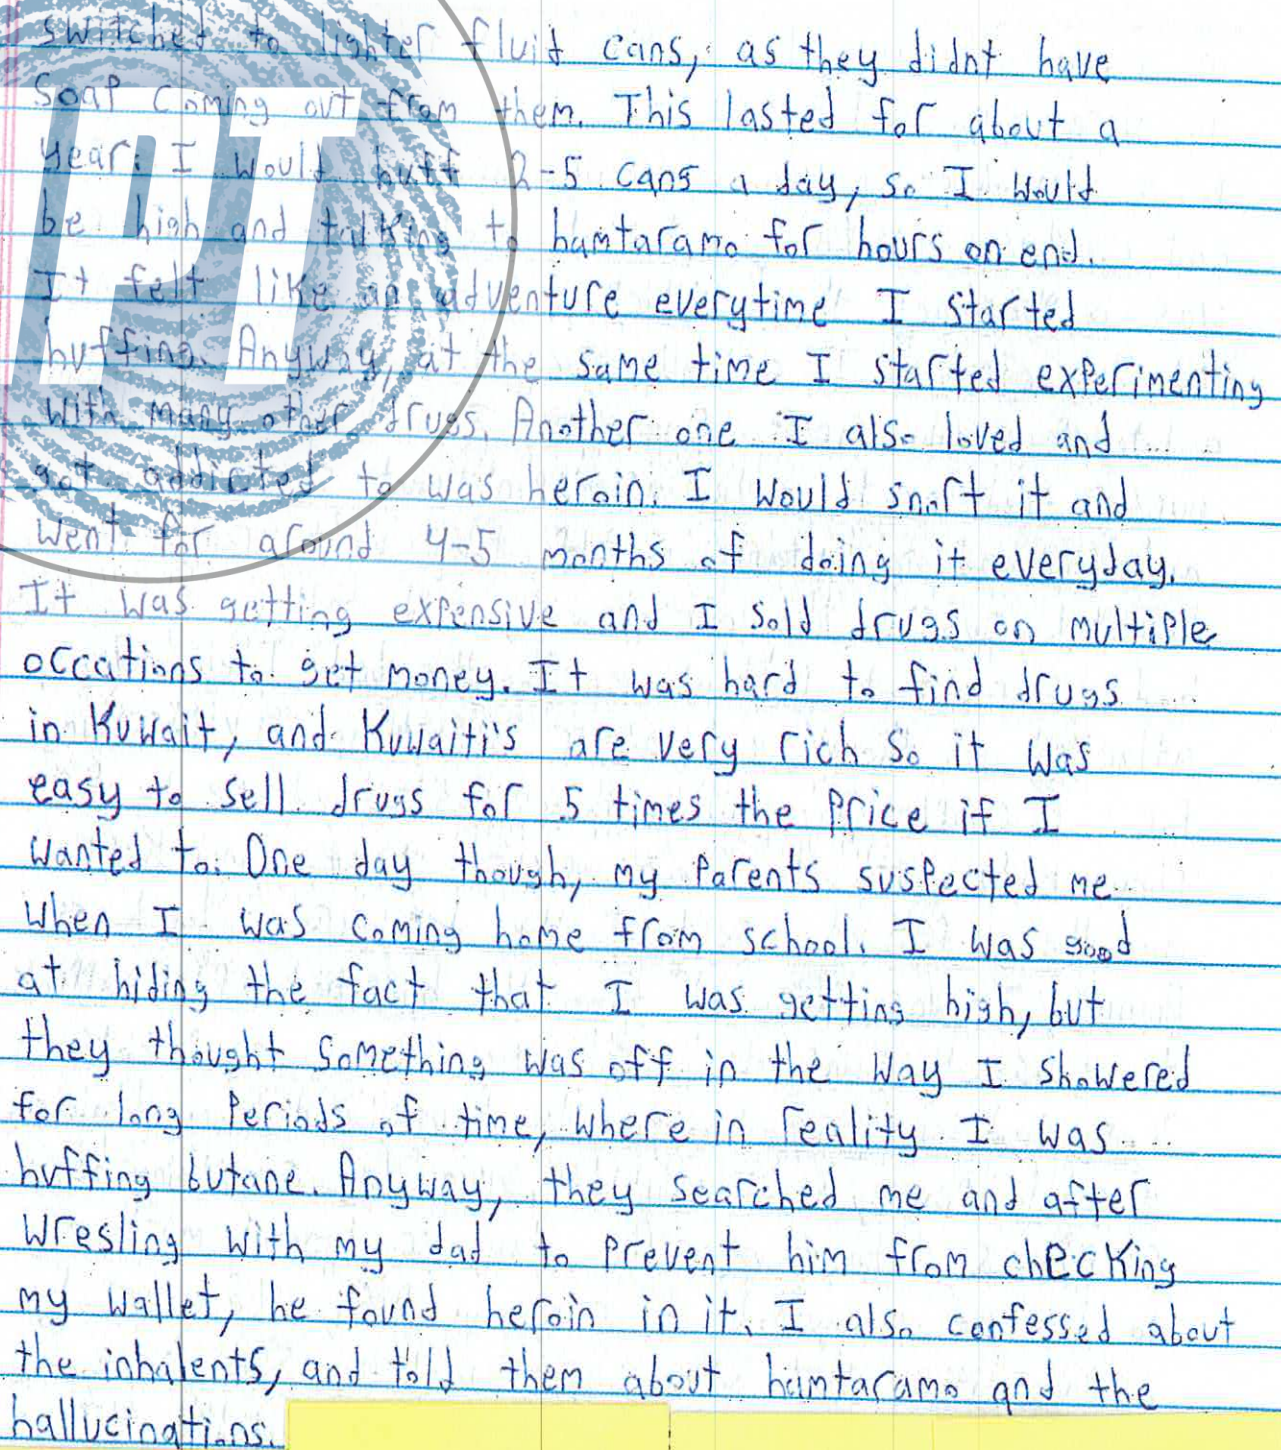 switched to lighter fluid cans, as they didnt have
soap coming out from them. This lasted for about a
year. I would huff 2-5 cans a day, so I would
be high and talking to hamtaramo for hours on end.
It felt like an adventure everytime I started
huffing. Anyway, at the same time I started experimenting
with many other drugs. Another one I also loved and
got addicted to was heroin. I would snort it and
went for around 4-5 months of doing it everyday.
It was getting expensive and I sold drugs on multiple
occations to get money. It was hard to find drugs
in Kuwait, and Kuwaiti's are very rich so it was
easy to sell drugs for 5 times the price if I
wanted to. One day though, my parents suspected me
when I was coming home from school. I was good
at hiding the fact that I was getting high, but
they thought something was off in the way I showered
for long periods of time, where in reality I was
huffing butane. Anyway, they searched me and after
wresling with my dad to prevent him from checking
my wallet, he found heroin in it. I also confessed about
the inhalents, and told them about hamtaramo and the
hallucinations.
PT